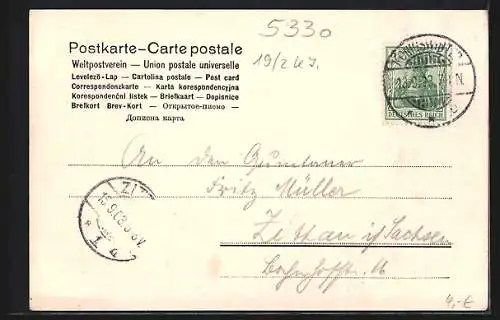 5330
19/2 KJ.
Postkarte-Carte postale
Weltpostverein — Union postale universelle
Levelező-Lap — Cartolina postale — Post card
Correspondenzkarte — Karta korespondencyjna
Korespondenční lístek — Briefkaart — Dopisnice
Brefkort Brev-Kort — Открытое-письмо —
Дописна карта
DEUTSCHES REICH
An den
Fritz Müller
Zittau i/Sachsen
Bahnhofstr. 16
ZITT
4,-€